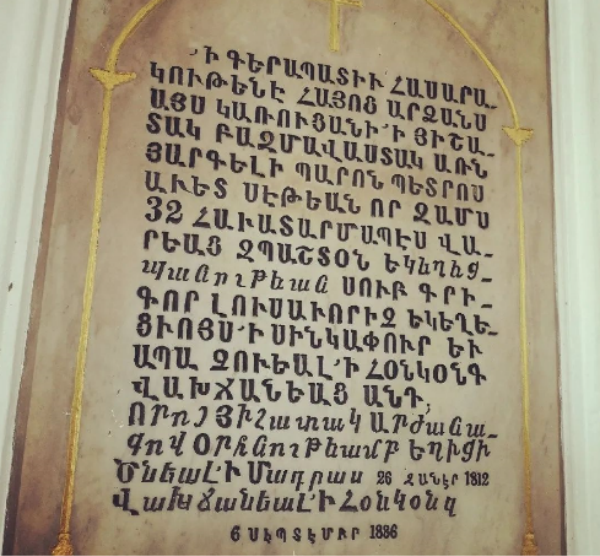 Ի ԳԵՐԱՊԱՏԻՒ ՀԱՍԱՐԱ-
ԿՈՒԹԵՆԷ ՀԱՅՈՑ ԱՐՁԱՆՍ
ԱՅՍ ԿԱՌՈՒՑԱՆԻ ՚Ի ՅԻՇԱ-
ՏԱԿ ԲԱԶՄԱՎԱՍՏԱԿ ԱՌՆ
ՅԱՐԳԵԼԻ ՊԱՐՈՆ ՊԵՏՐՈՍ
ԱՒԵՏ ՍԷԹԵԱՆ ՈՐ ԶԱՄՍ
32 ՀԱՒԱՏԱՐՄԱՊԷՍ ՎԱ-
ՐԵԱՑ ԶՊԱՇՏՕՆ ԵԿԵՂԵՑ-
պանութեան ՍՈՒԲ ԳՐԻ-
ԳՈՐ ԼՈՒՍԱՒՈՐՉ ԵԿԵՂԵ-
ՑՒՈՅՍ ՚Ի ՍԻՆԿԱՓՈՒՐ ԵՒ
ԱՊԱ ՉՈՒԵԱԼ ՚Ի ՀՕՆԿՕՆԳ
ՎԱԽՃԱՆԵԱՑ ԱՆԴ,
ՈՐՈՅ ՅԻշատակ ԱՐԺանա-
գով ՕՐՀնութեամբ ԵՂԻՑԻ
Ծնեալ ՚Ի Մադրաս 26 ՅԱՆԷՐ 1812
Վախճանեալ ՚Ի Հօնկօնգ
6 ՍԷՊՏԷՄԲՐ 1886